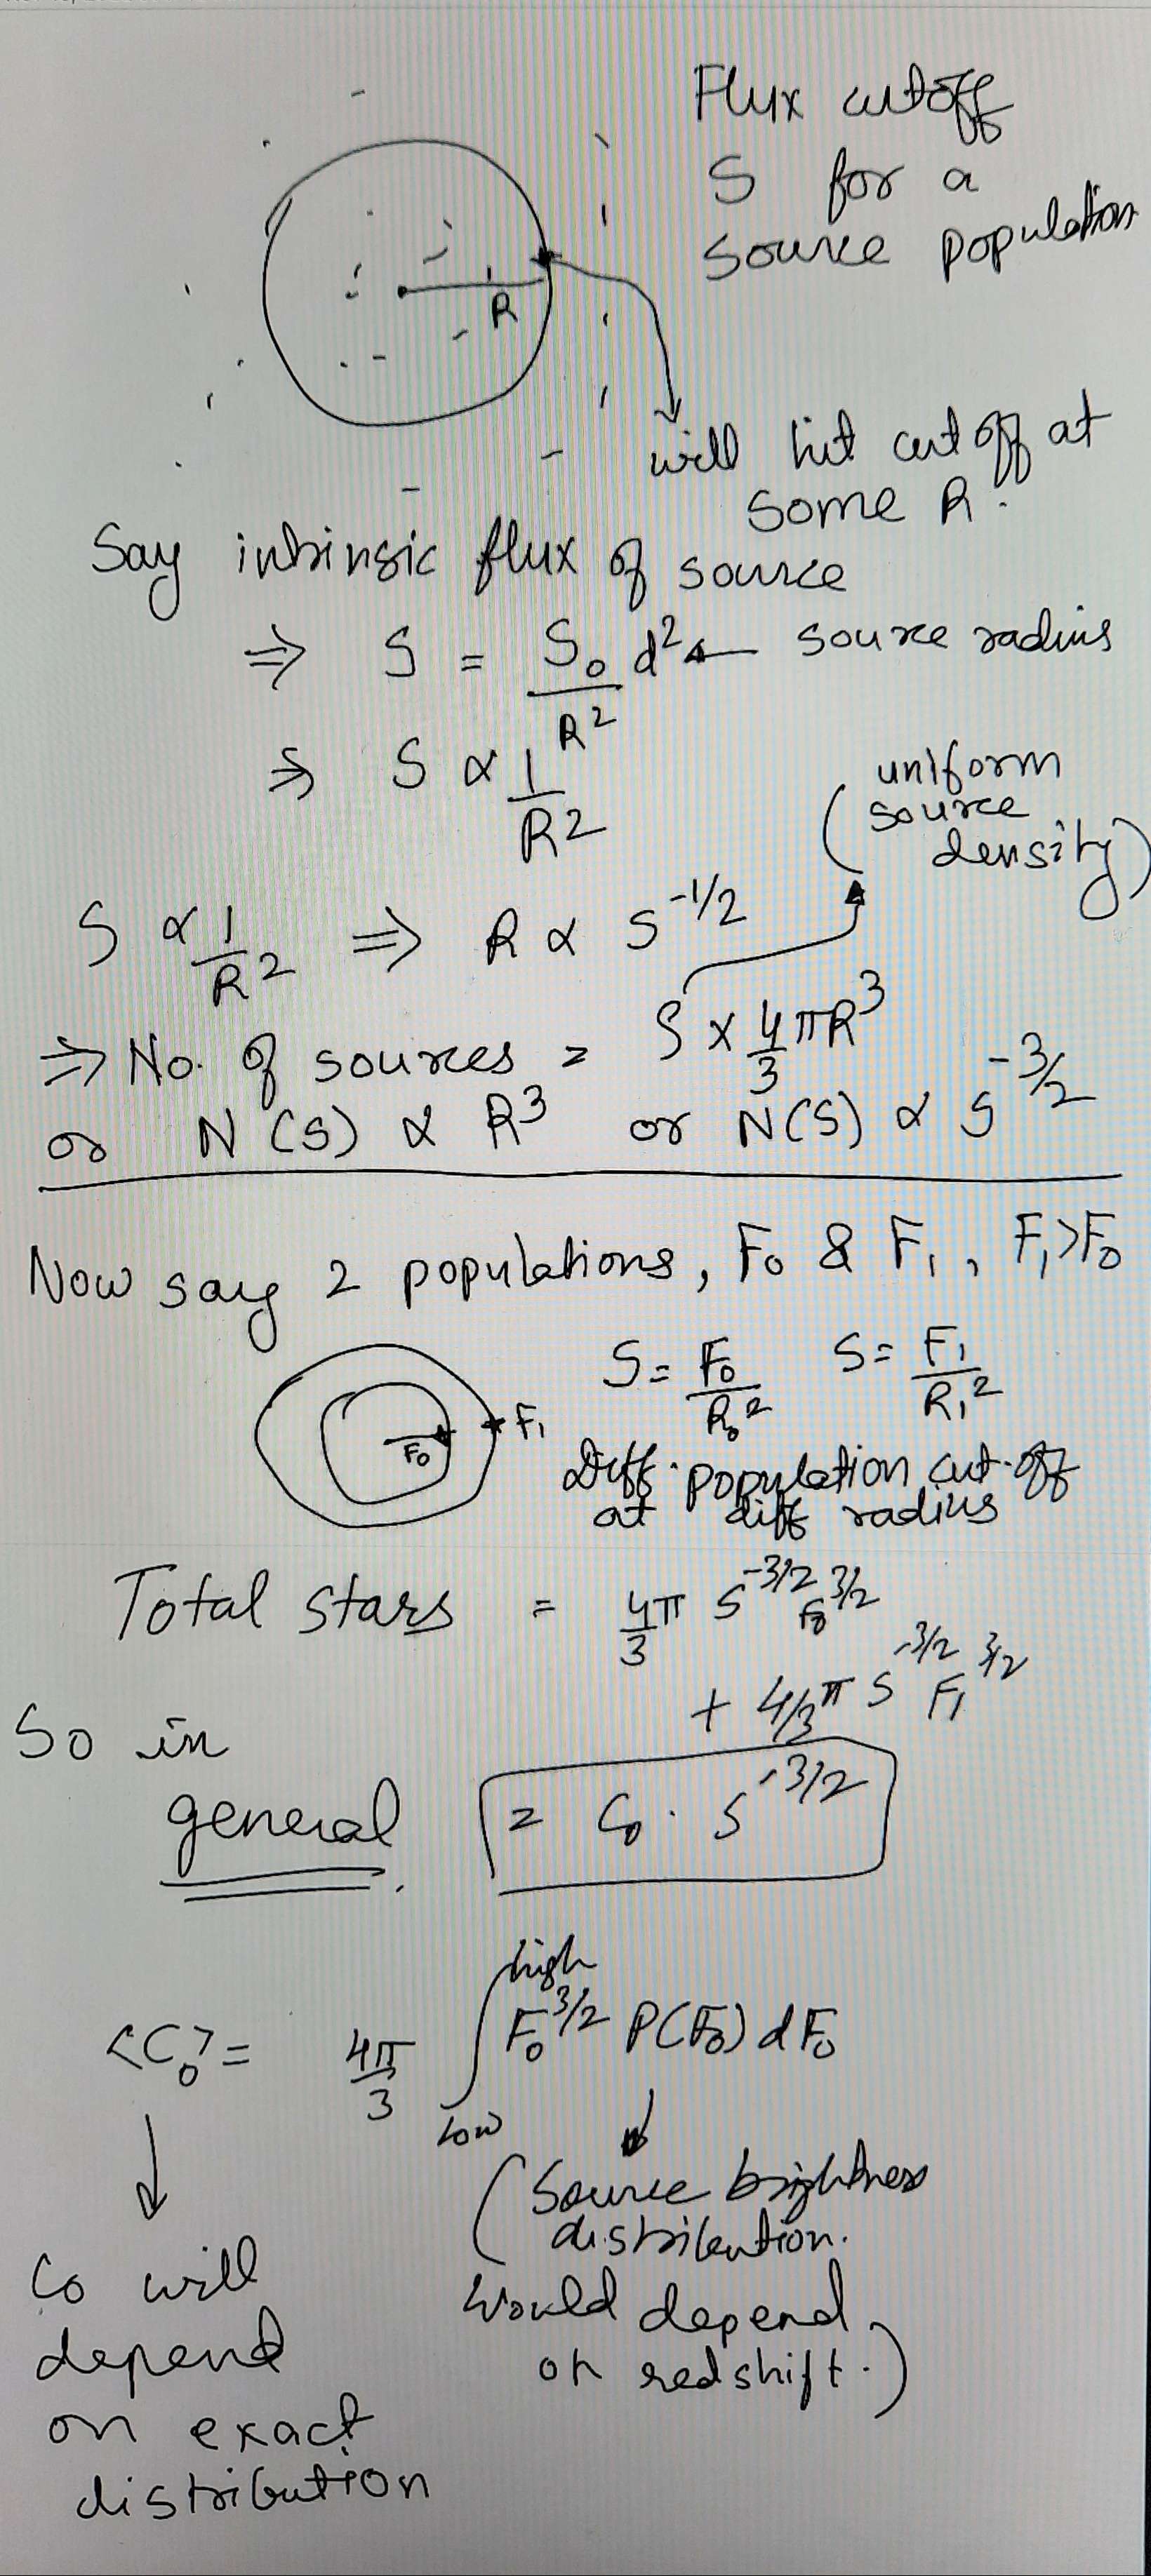 Flux cutoff
S for a
source population
R
will hit cut off at
some R.
Say intrinsic flux of source
⇒ S = S₀ d² ← source radius
R²
⇒ S ∝ 1/R²
(uniform
source
density)
S ∝ 1/R² ⇒ R ∝ S^-1/2
⇒ No. of sources = ρ × 4/3 πR³
or N(S) ∝ R³ or N(S) ∝ S^-3/2
Now say 2 populations, F₀ & F₁, F₁>F₀
S = F₀/R₀² S = F₁/R₁²
F₀ F₁
Diff. population cut-off
at diff radius
Total stars = 4/3 π S^-3/2 F₀^3/2
+ 4/3 π S^-3/2 F₁^3/2
So in
general = C₀ · S^-3/2
<C₀> = 4π/3 ∫ F₀^3/2 P(F₀) dF₀
high
Low
(Source brightness
distribution.
Would depend
on redshift.)
C₀ will
depend
on exact
distribution